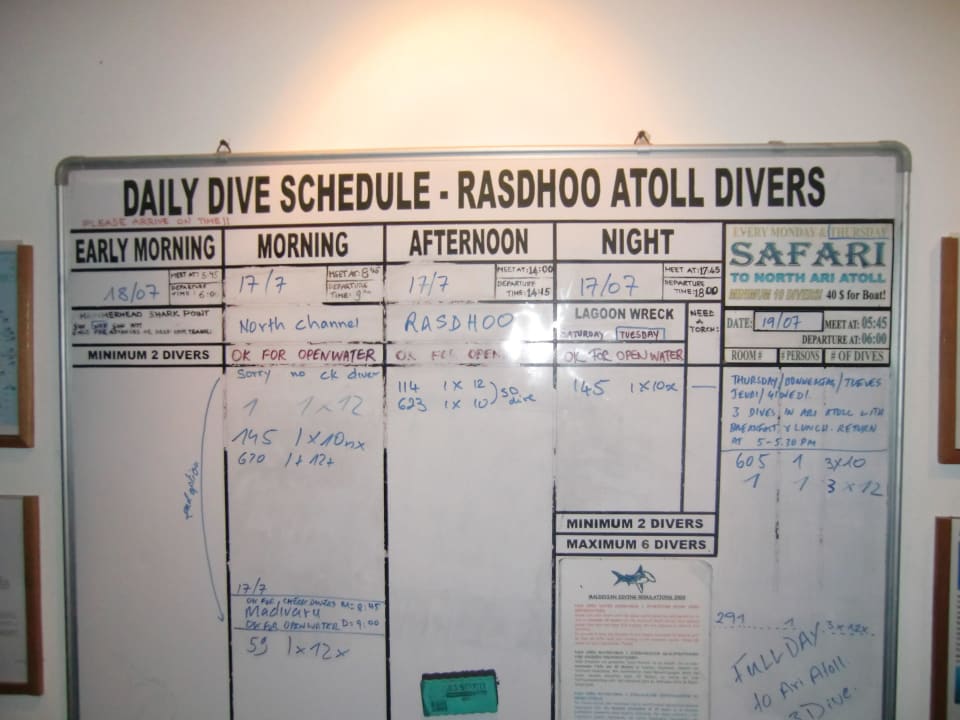 DAILY DIVE SCHEDULE - RASDHOO ATOLL DIVERS
PLEASE ARRIVE ON TIME!!
EARLY MORNING
MEET AT: 5:45
18/07
DEPARTURE TIME: 6:00
HAMMERHEAD SHARK POINT
MINIMUM 2 DIVERS
MORNING
17/7
MEET AT: 8 45
DEPARTURE TIME: 9 00
North channel
OK FOR OPENWATER
Sorry no ck diver
1 1x12
145 1x10
620 1+12+
17/7
OK FOR CHECK DIVERS M= 8:45
Madivaru
OK FOR OPENWATER D= 9:00
59 1x12x
AFTERNOON
17/7
MEET AT: 14:00
DEPARTURE TIME: 14:45
RASDHOO
OK FOR OPEN
114 1x12
623 1x10
SD dive
NIGHT
17/07
MEET AT: 17.45
DEPARTURE TIME: 18 00
LAGOON WRECK
SATURDAY TUESDAY
NEED A TORCH:
OK FOR OPENWATER
145 1x10x —
MINIMUM 2 DIVERS
MAXIMUM 6 DIVERS
MALDIVIAN DIVING REGULATIONS 2003
EVERY MONDAY & THURSDAY
SAFARI
TO NORTH ARI ATOLL
MINIMUM 10 DIVERS! 40 $ for Boat!
DATE: 19/07 MEET AT: 05:45
DEPARTURE AT: 06:00
ROOM # # PERSONS # OF DIVES
THURSDAY/
JEUDI/
3 DIVES IN ARI ATOLL WITH
BREAKFAST & LUNCH. RETURN
AT 5-5.30 PM
605 1 3x10
1 1 3x12
291 1 3x12x
FULL DAY
to Ari Atoll
3 Dive.